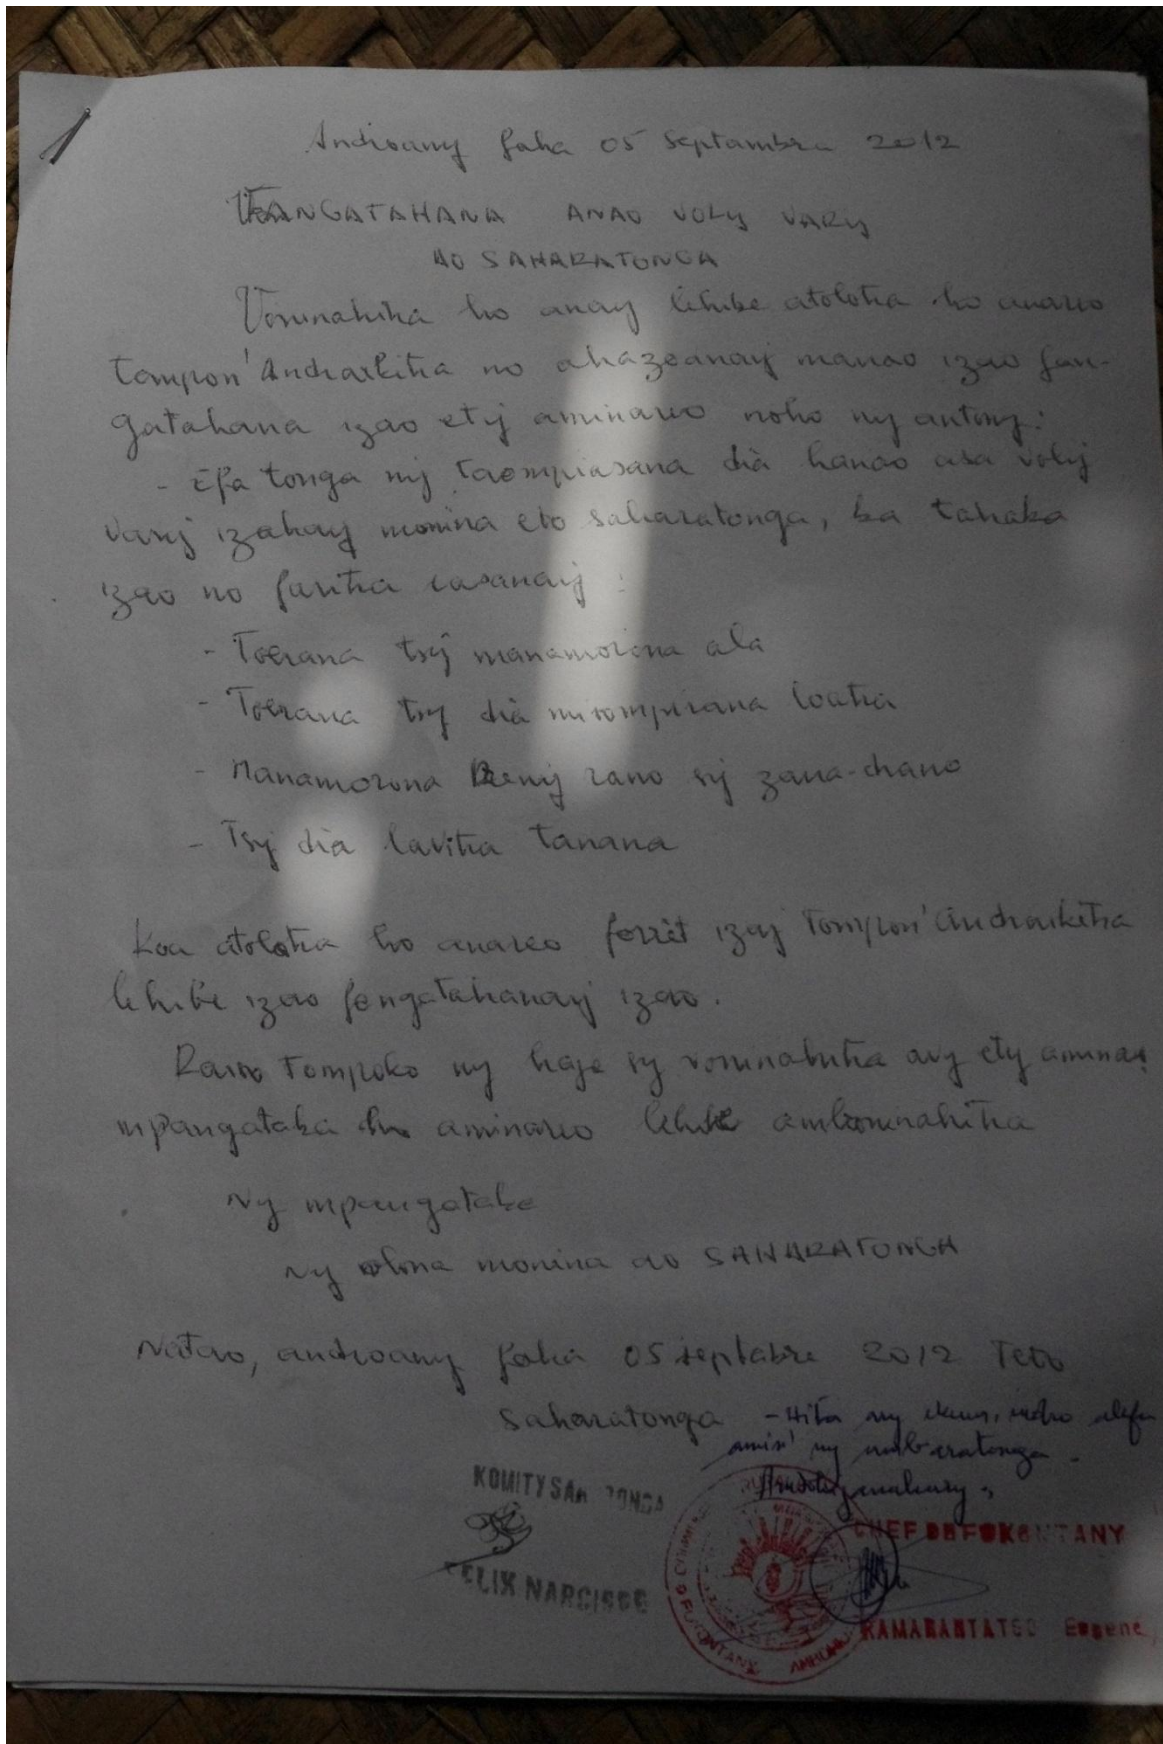 Androany faha 05 Septambra 2012
FANGATAHANA ANAO VOLY VARY
AO SAHARATONGA
Voninahitra ho anay lehibe atolotra ho anareo
tompon'Andraikitra no ahazoanay manao izao fan-
gatahana izao ety aminareo noho ny antony:
- Efa tonga ny taompiasana dia hanao asa voly
vary izahay monina eto saharatonga, ka tahaka
izao no faritra iasanay :
- Toerana tsy manamorona ala
- Toerana tsy dia misompirana loatra
- Manamorona Renij rano sy zana-drano
- Tsy dia lavitra tanana
Koa atolotra ho anareo izay Tompon'andraikitra
lehibe izao fangatahanay izao.
Raiso tompoko ny haja sy voninahitra avy ety aminay
mpangataka ho aminareo lehibe ambonynahitra
Ny mpangataka
Ny olona monina ao SAHARATONGA
Natao, androany faha 05 septabre 2012 Teto
Saharatonga - Hita ny
amin' ny
KOMITY SAHARATONGA
FELIX NARCISSE
CHEF DE FOKONTANY
FOKONTANY
Eugene